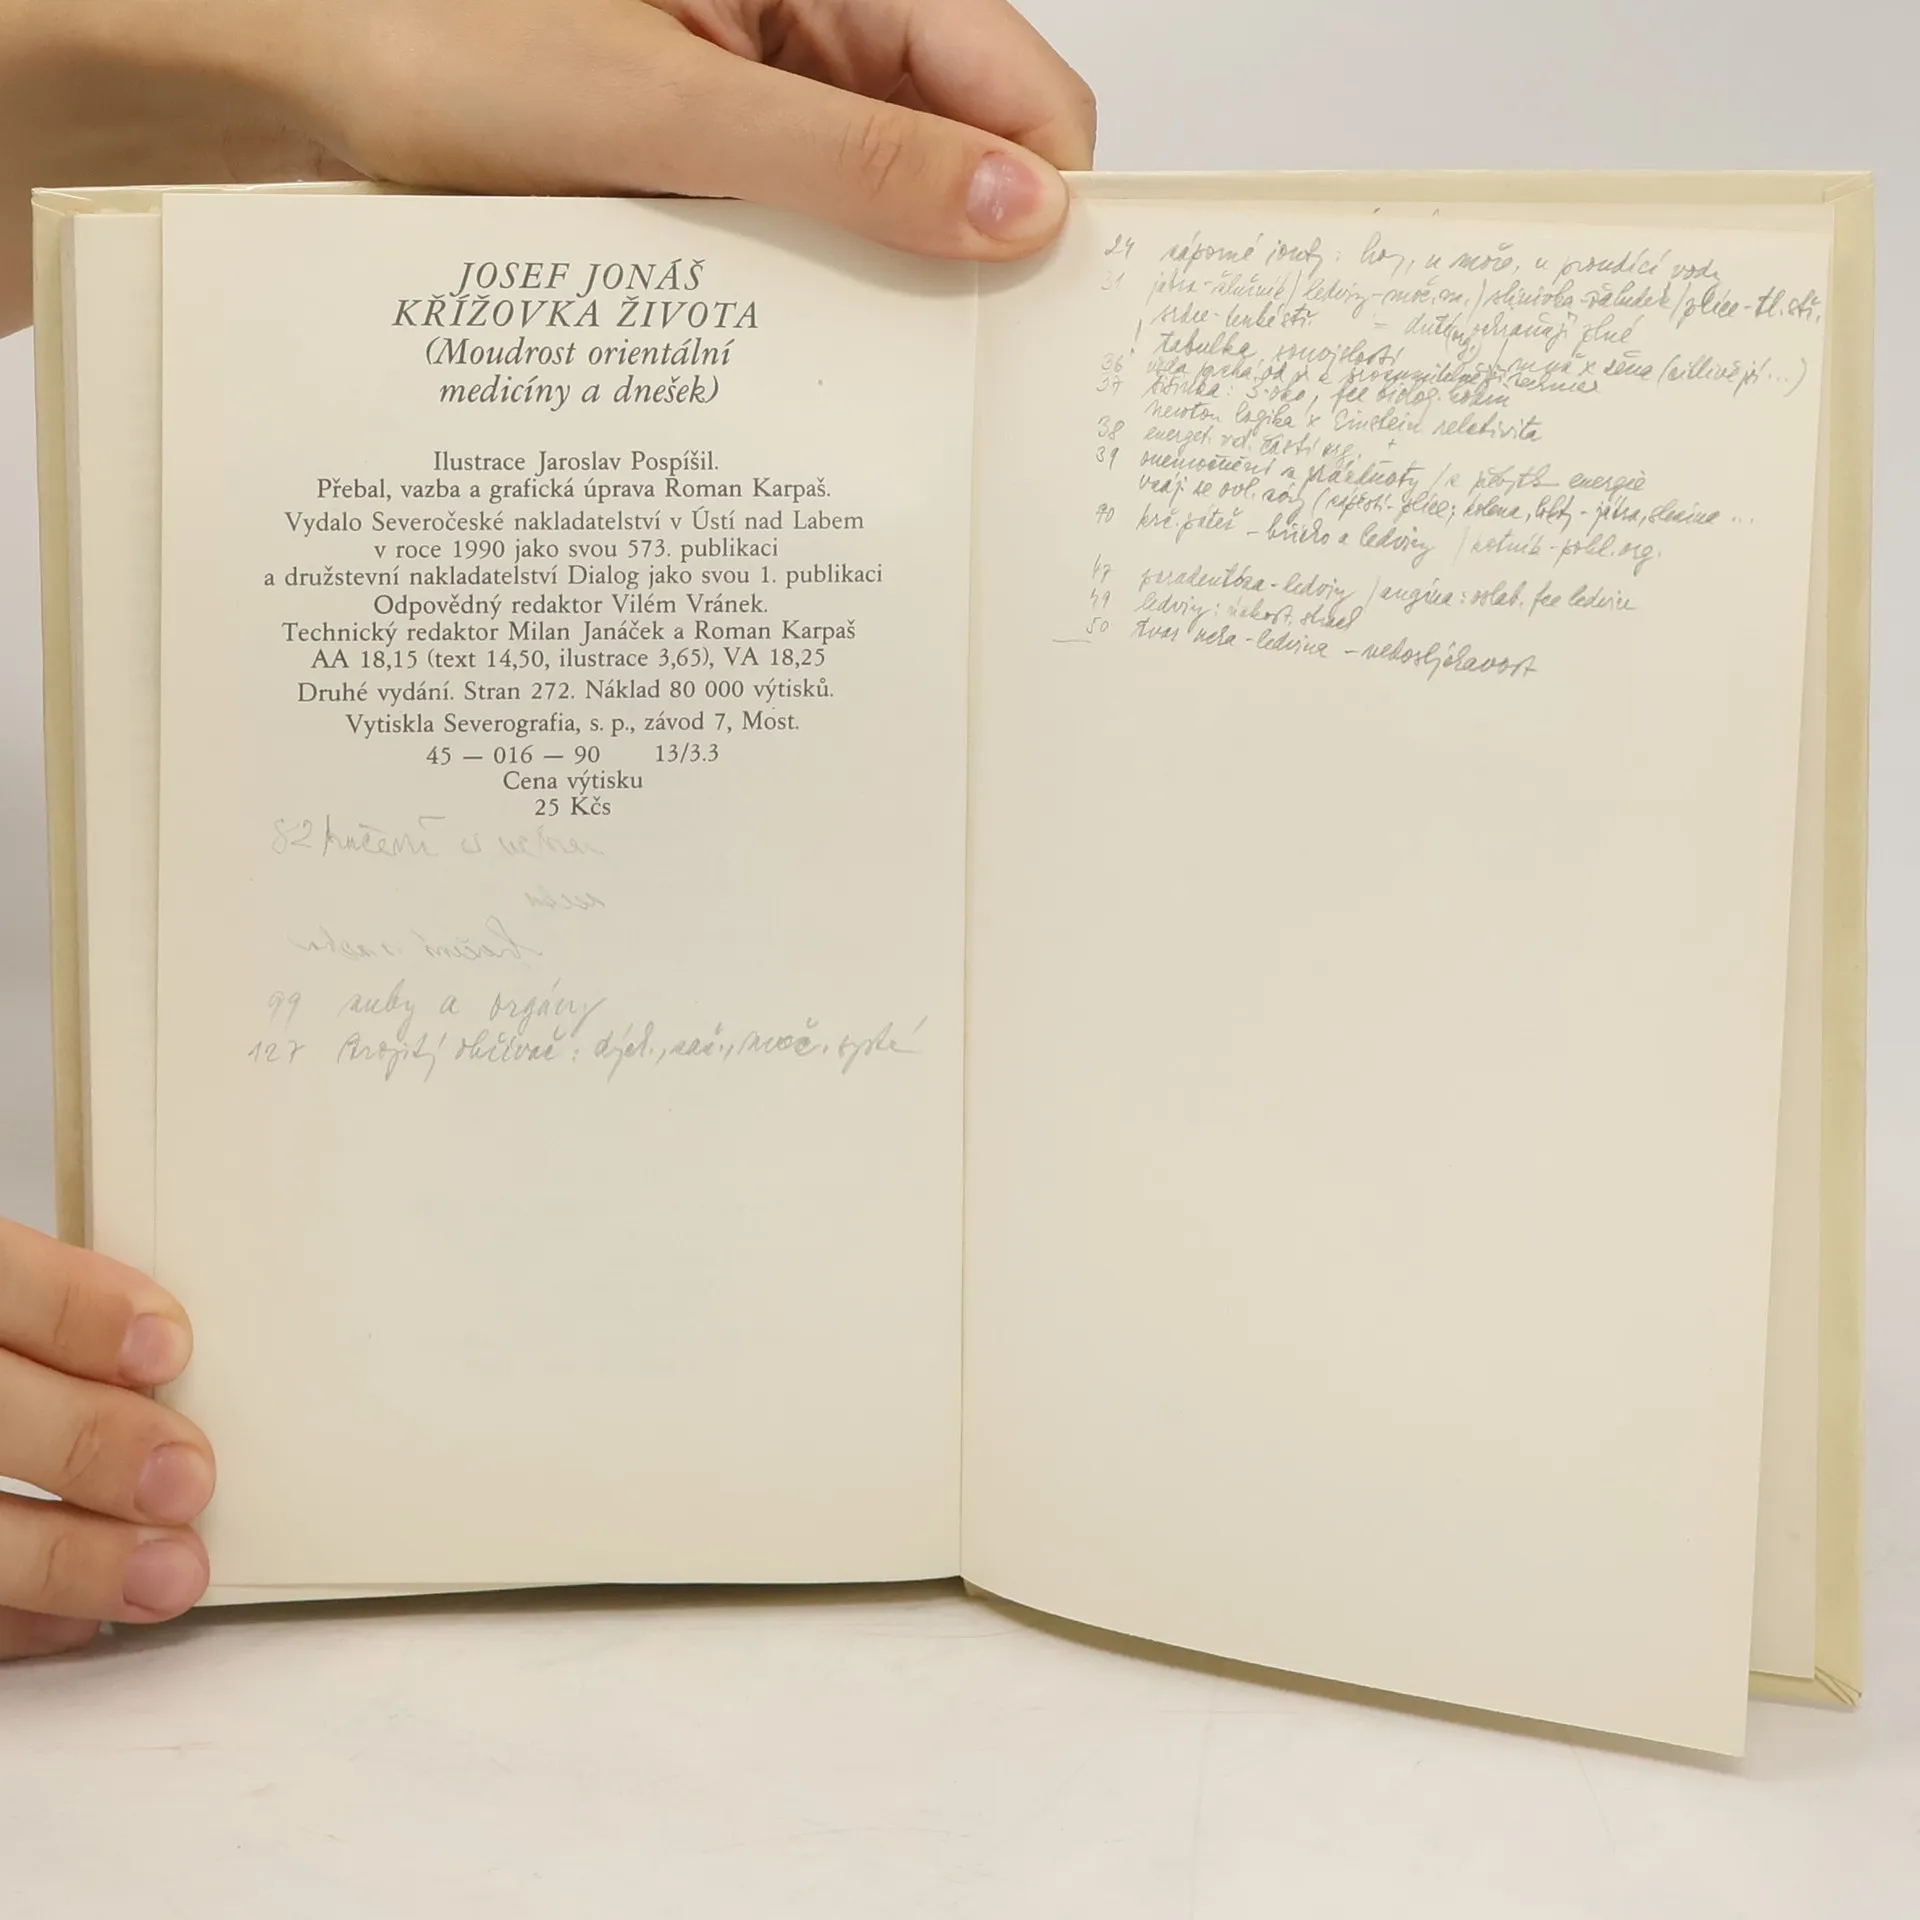 JOSEF JONÁŠ
KŘÍŽOVKA ŽIVOTA
(Moudrost orientální
medicíny a dnešek)
Ilustrace Jaroslav Pospíšil.
Přebal, vazba a grafická úprava Roman Karpaš.
Vydalo Severočeské nakladatelství v Ústí nad Labem
v roce 1990 jako svou 573. publikaci
a družstevní nakladatelství Dialog jako svou 1. publikaci
Odpovědný redaktor Vilém Vránek.
Technický redaktor Milan Janáček a Roman Karpaš
AA 18,15 (text 14,50, ilustrace 3,65), VA 18,25
Druhé vydání. Stran 272. Náklad 80 000 výtisků.
Vytiskla Severografia, s. p., závod 7, Most.
45 — 016 — 90 13/3.3
Cena výtisku
25 Kčs
82
99 zuby a orgány
127 trojitý ohřívač: dých., zaž., moč. systé
24 záporné ionty: hory, u moře, u proudící vody
31 játra-žlučník/ledviny-moč. m./slinivka-žaludek/plíce-tl. stř.
srdce-tenké stř. = duté org. ochraňují plné
! tabulka souvislostí / muž x žena (citlivější...)
36
37
newton logika x Einstein relativita
38 energet. části org.
39 onemocnění z prázdnoty / z přebytk energie
(zápěstí-plíce; kolena, lokty-játra, slezina ...
40 krč. páteř - břicho a ledviny / kotník-pohl. org.
47 paradentóza-ledviny / angína: oslab. fce ledvin
49 ledviny: strach
50 tvar ucha-ledvina - nedoslýchavost